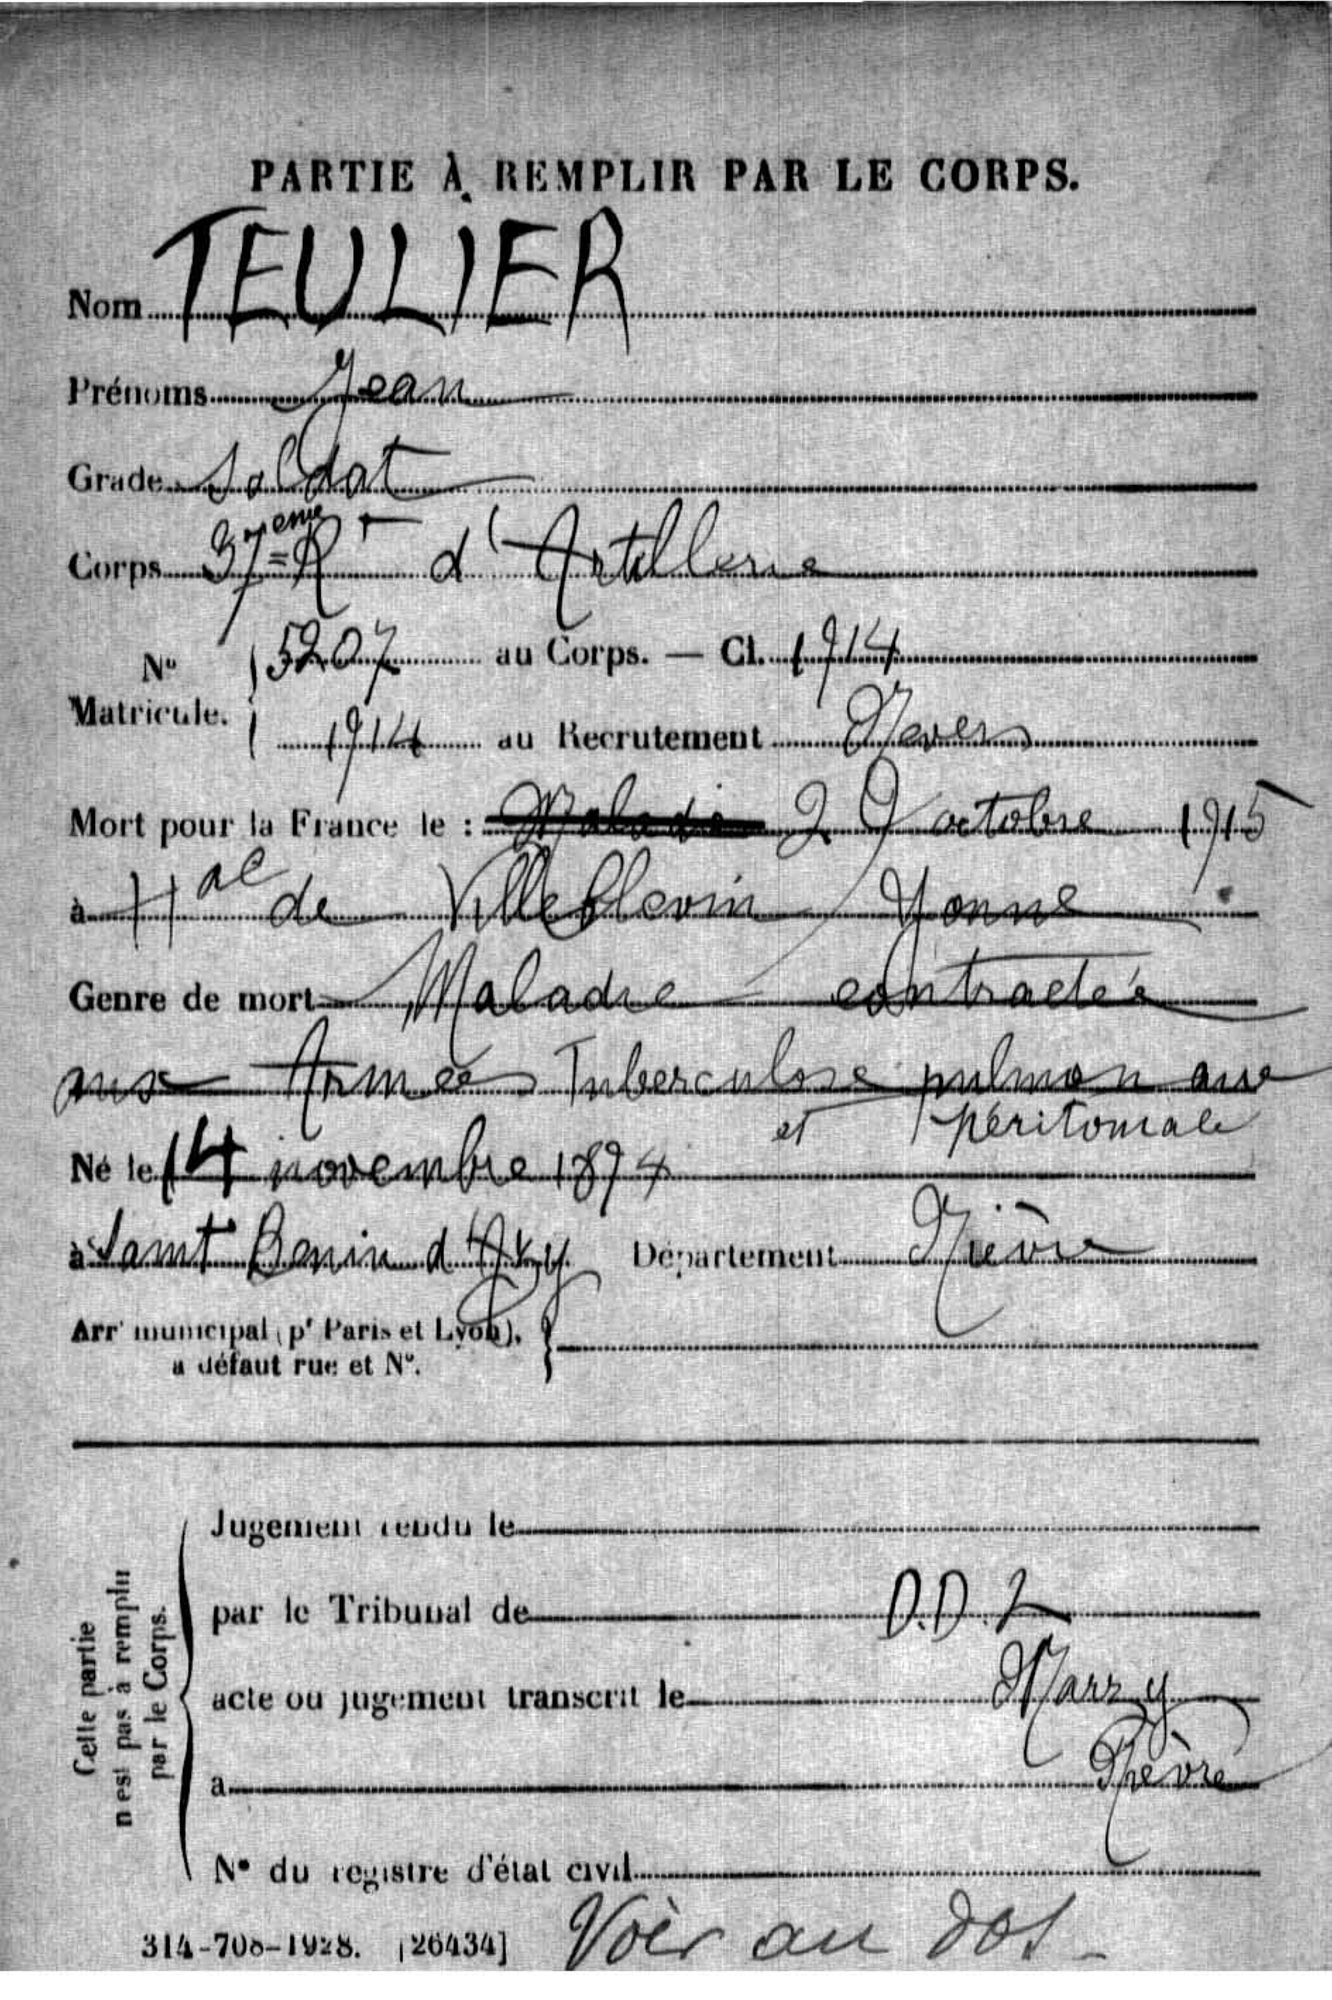 PARTIE À REMPLIR PAR LE CORPS.
Nom TEULIER
Prénoms Jean
Grade Soldat
Corps 37ème Rt d'Artillerie
No Matricule. 5207 au Corps. — Cl. 1914
1914 au Recrutement Nevers
Mort pour la France le : Maladie 29 octobre 1915
à Hal de Villeblevin Yonne
Genre de mort Maladie contractée
aux Armées Tuberculose pulmonaire
et péritonale
Né le 14 novembre 1894
à Saint Benin d'Azy Département Nièvre
Arrt municipal (pr Paris et Lyon),
à défaut rue et No.
Cette partie
n'est pas à remplir
par le Corps.
Jugement rendu le
par le Tribunal de D.D.2
acte ou jugement transcrit le Marzy
à Nièvre
No du registre d'état civil
314-708-1928. [26434] Voir au dos